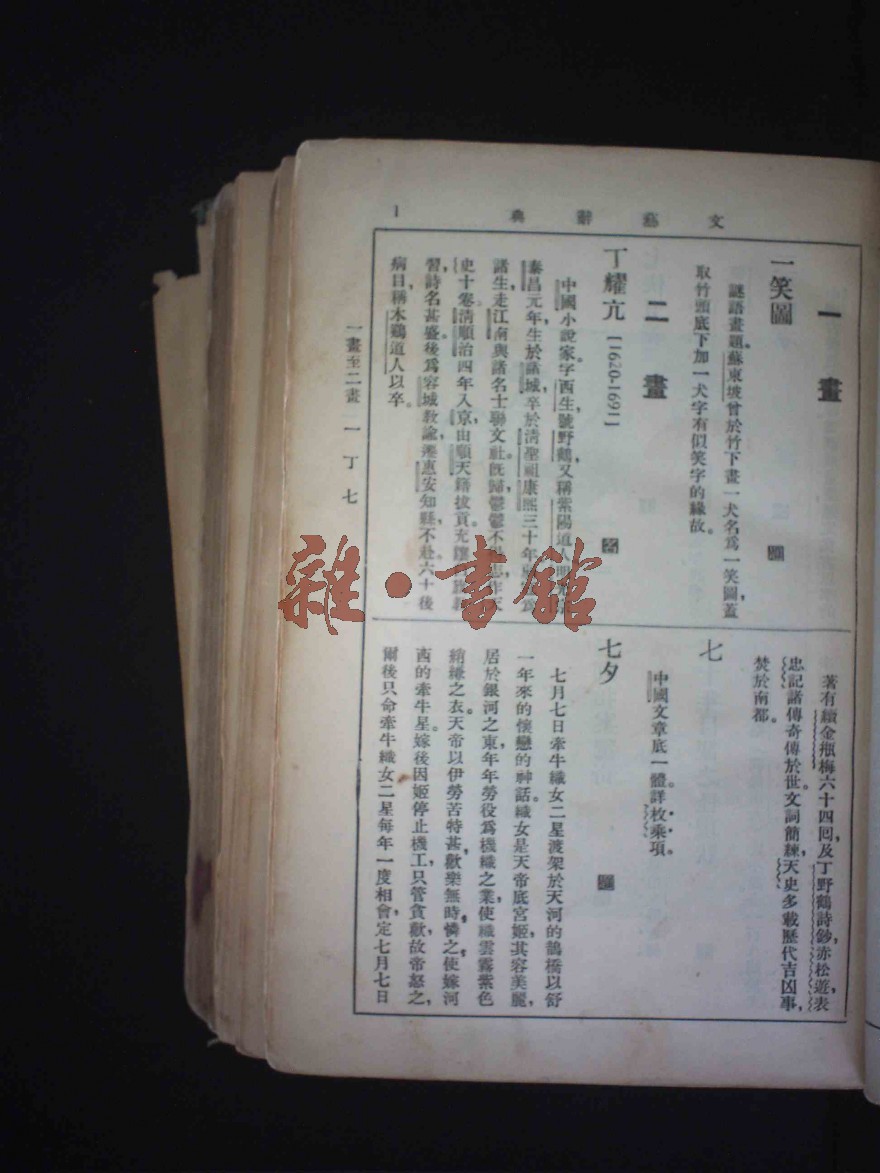 文藝辭典
1
一畫
一笑圖
謎語畫題。蘇東坡曾於竹下畫一犬名爲一笑圖,蓋
取竹頭底下加一犬字有似笑字的緣故。
二畫
丁耀亢【1620-1691】 名
中國小說家字西生,號野鶴,又稱紫陽道人明
泰昌元年生於諸城,卒於清聖祖康熙三十年
諸生,走江南與諸名士聯文社。既歸,鬱鬱不
史十卷。清順治四年入京,由順天籍拔貢,充鑲
習,詩名甚盛。後爲容城教諭,遷惠安知縣,不赴。六十後
病目,稱木鷄道人以卒。
著有續金瓶梅六十四回,及丁野鶴詩鈔,赤松遊,表
忠記諸傳奇傳於世。文詞簡練。天史多載歷代吉凶事,
焚於南都。
七
中國文章底一體。詳枚乘項。
七夕
七月七日牽牛織女二星渡架於天河的鵲橋以舒
一年來的懷戀的神話。織女是天帝底宮姬,其容美麗,
居於銀河之東,年年勞役爲機織之業,使織雲霧紫色
綃縑之衣。天帝以伊勞苦特甚,歡樂無時,憐之,使嫁河
西的牽牛星。嫁後因姬停止機工,只管貪歡,故帝怒之,
爾後只命牽牛織女二星每年一度相會,定七月七日
一畫至二畫 一丁七
雜·書館